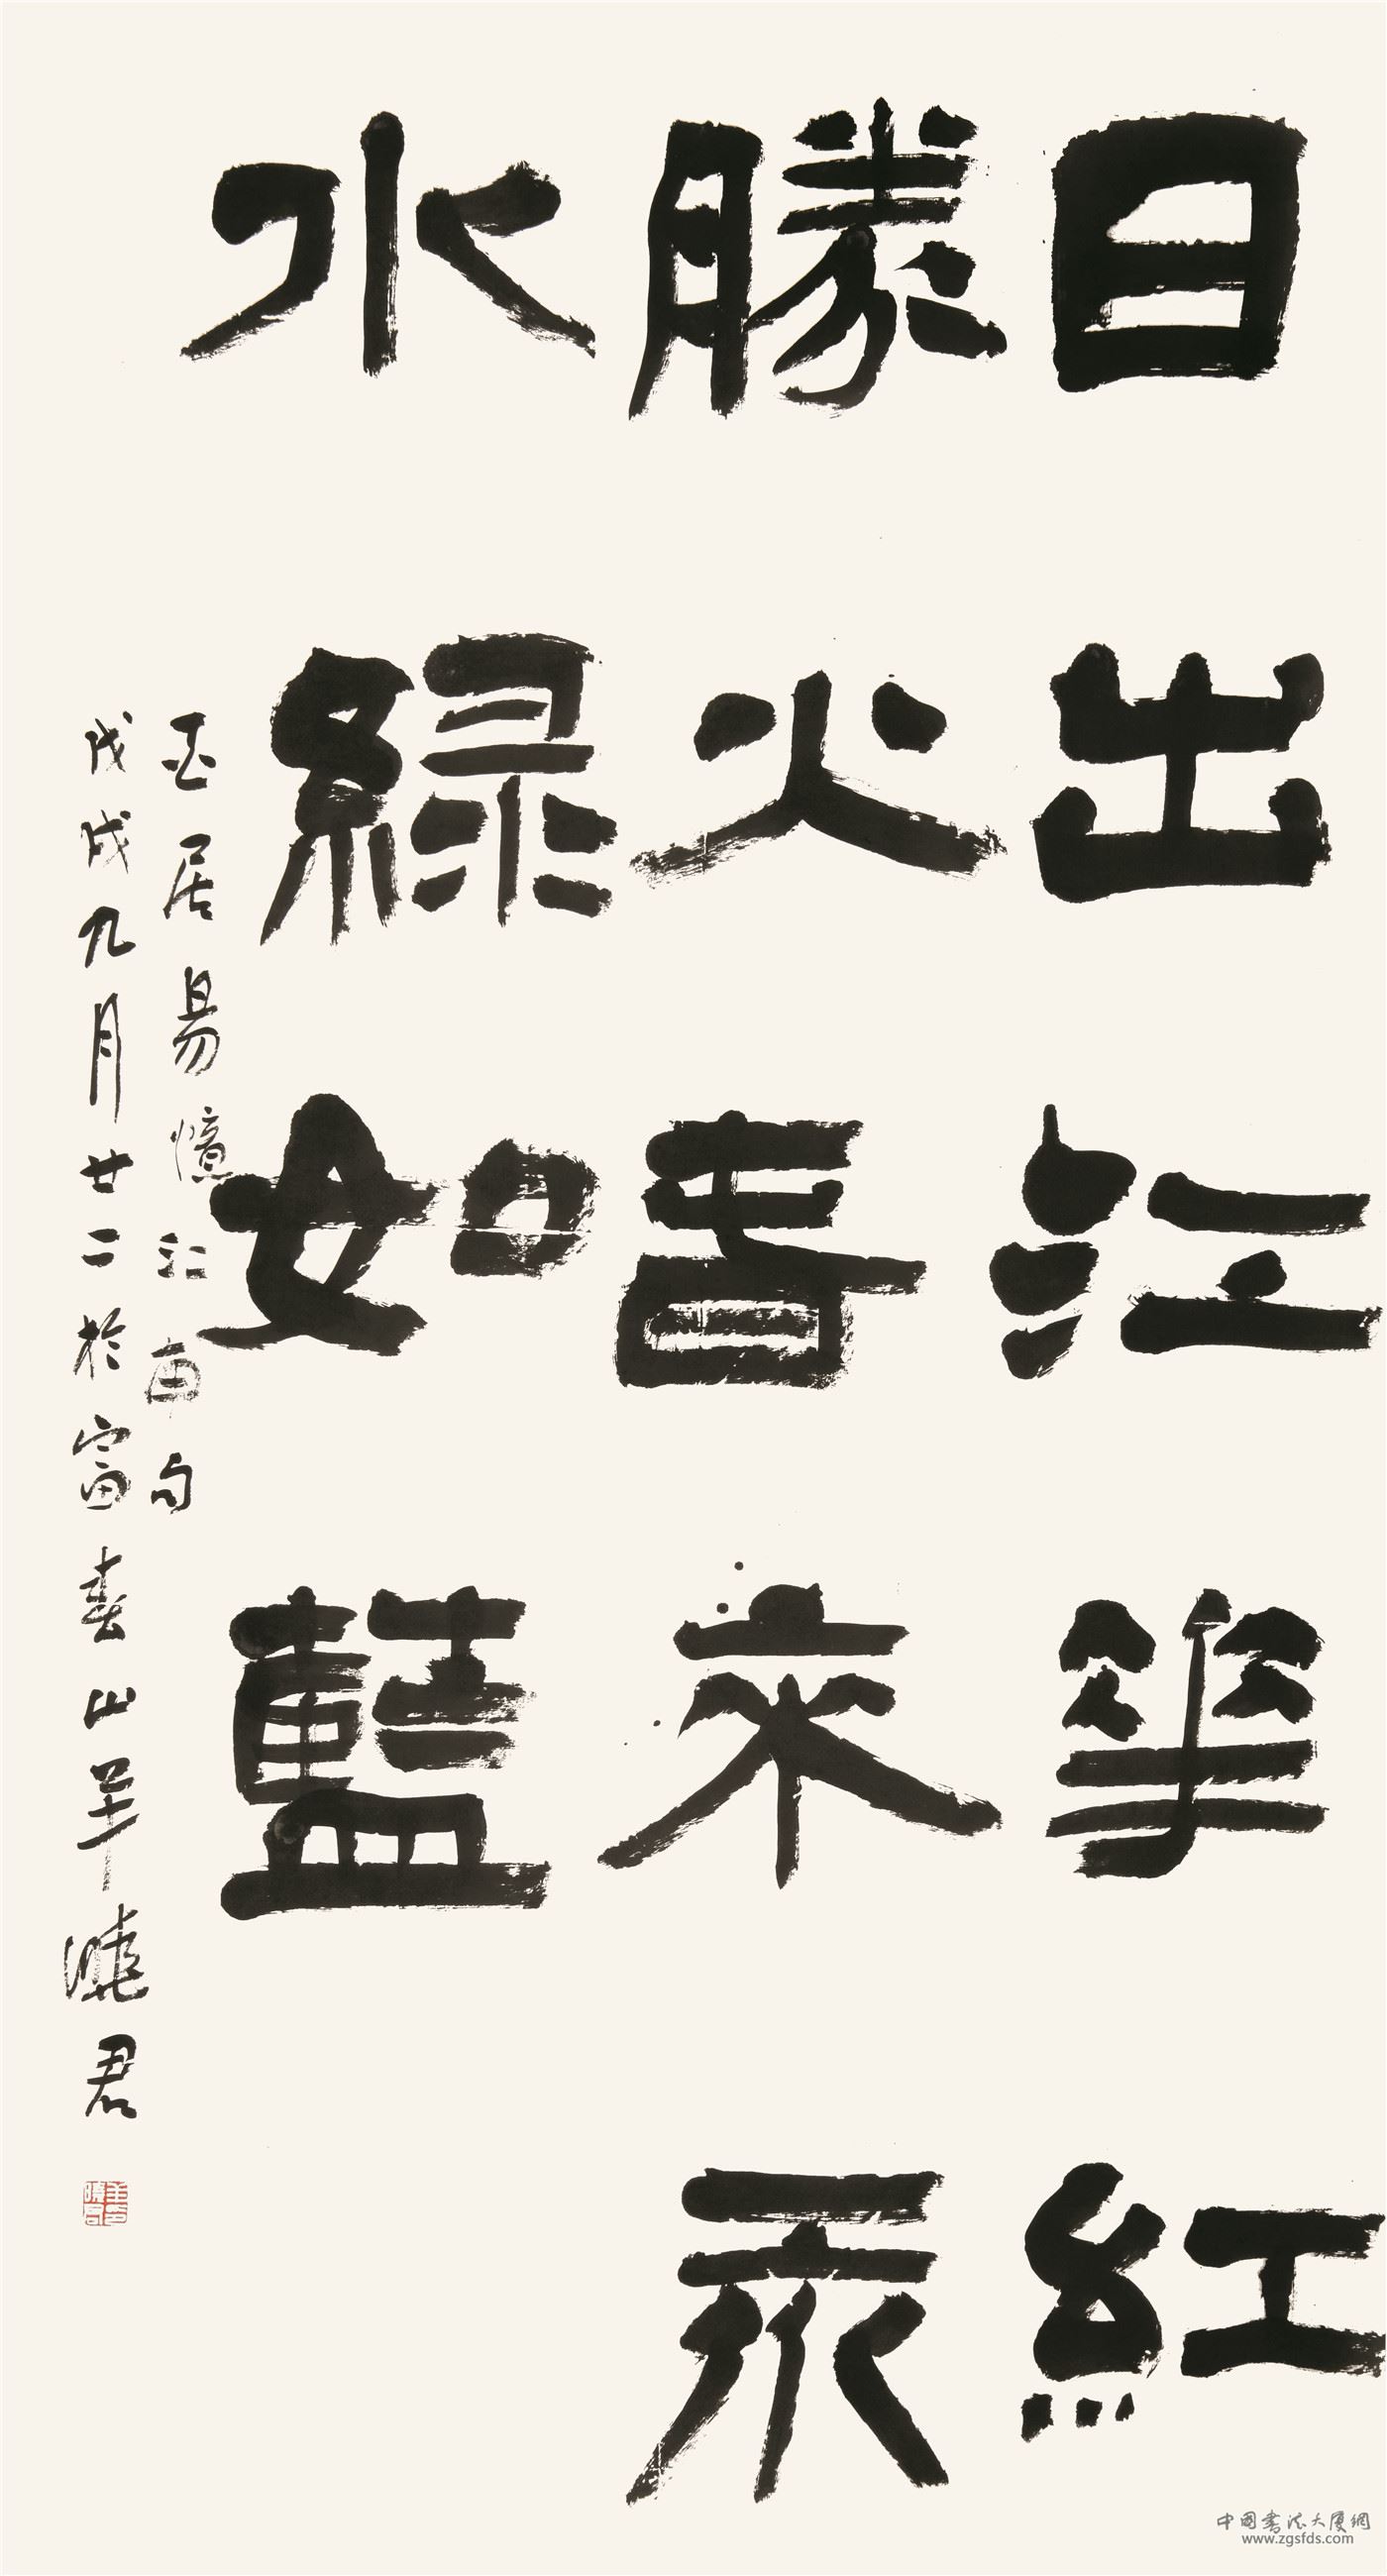 日出江華紅
勝火春來永
水綠如藍
白居易憶江南句
戊戌九月廿二於富春山羊曉君
羊曉君
中國書法大厦網
www.zgsfds.com